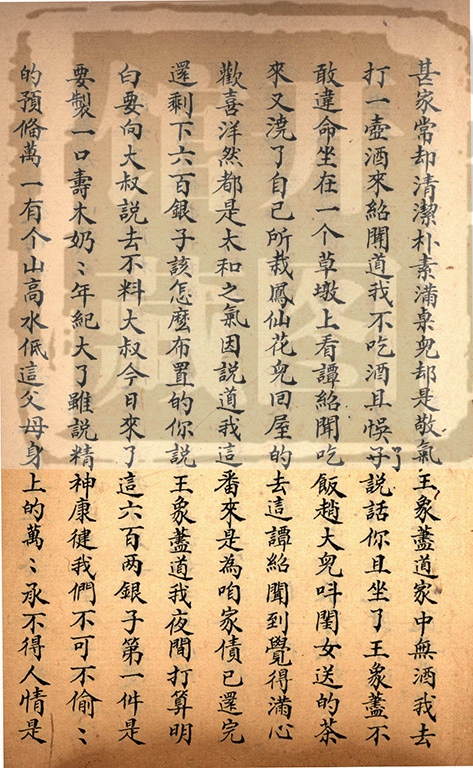 甚家常却清潔朴素滿桌兒却是敬氣王象藎道家中無酒我去
打一壺酒來紹聞道我不吃酒且悞了說話你且坐了王象藎不
敢違命坐在一个草墩上看譚紹聞吃飯趙大兒呌閨女送的茶
來又澆了自己所栽鳳仙花兒回屋的去這譚紹聞到覺得滿心
歡喜洋然都是太和之氣因說道我這番來是為咱家債已還完
還剩下六百銀子該怎麽布置的你說王象藎道我夜間打算明
白要向大叔說去不料大叔今日來了這六百两銀子第一件是
要製一口壽木奶〻年紀大了雖說精神康健我們不可不偷〻
的預俻萬一有个山高水低這父母身上的萬〻承不得人情是
开图
馆藏